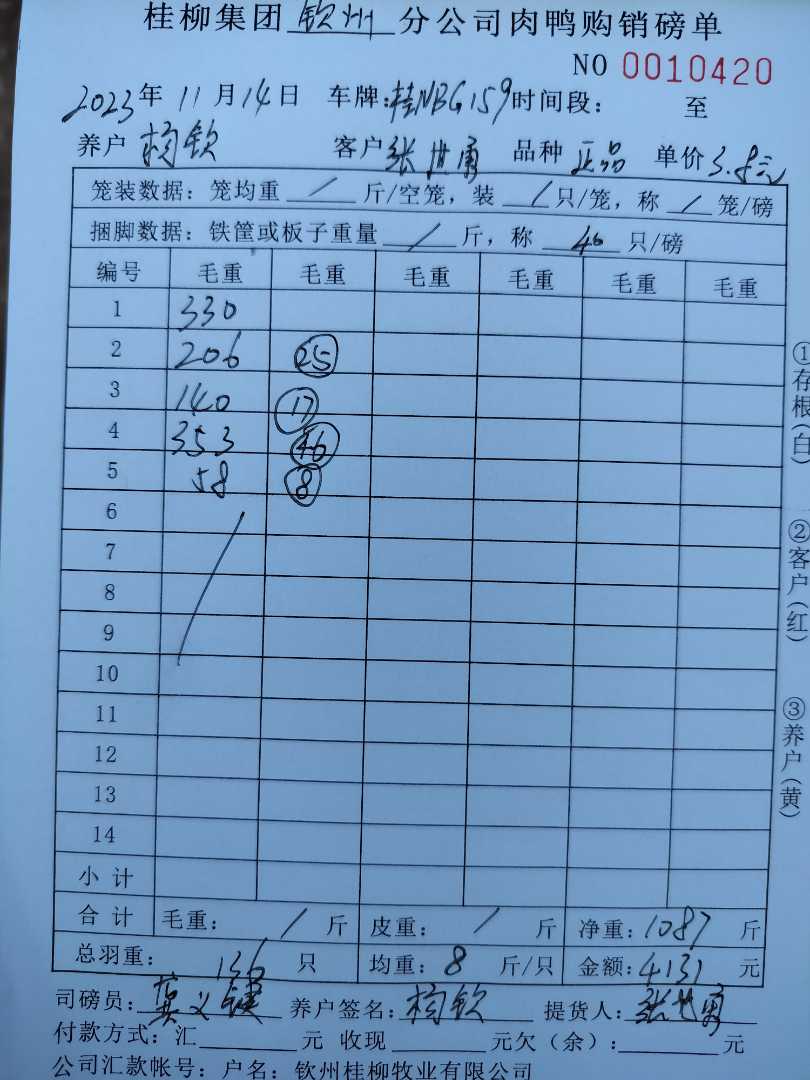 桂柳集团 钦州 分公司肉鸭购销磅单
NO 0010420
2023年 11月14日 车牌:桂NBG159 时间段: 至
养户 杨钦 客户 张世勇 品种 正品 单价 3.8元
笼装数据: 笼均重 / 斤/空笼, 装 / 只/笼, 称 / 笼/磅
捆脚数据: 铁筐或板子重量 / 斤, 称 40 只/磅
编号 毛重 毛重 毛重 毛重 毛重 毛重
1 330
2 206 25
3 140 17
4 353 46
5 58 8
6
7
8
9
10
11
12
13
14
小计
合计 毛重: / 斤 皮重: / 斤 净重: 1087 斤
总羽重: 136 只 均重: 8 斤/只 金额: 4131 元
司磅员: 义 养户签名: 杨钦 提货人: 张世勇
付款方式: 汇 元 收现 元欠(余): 元
公司汇款帐号: 户名: 钦州桂柳牧业有限公司
①存根(白) ②客户(红) ③养户(黄)